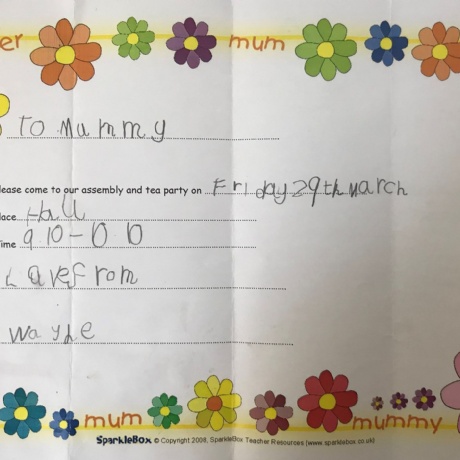 er mum
To Mummy
lease come to our assembly and tea party on Friday 29th March
lace Hall
ime 9 10 - 10
Love from
Wayne
mum mummy
SparkleBox © Copyright 2008, SparkleBox Teacher Resources (www.sparklebox.co.uk)